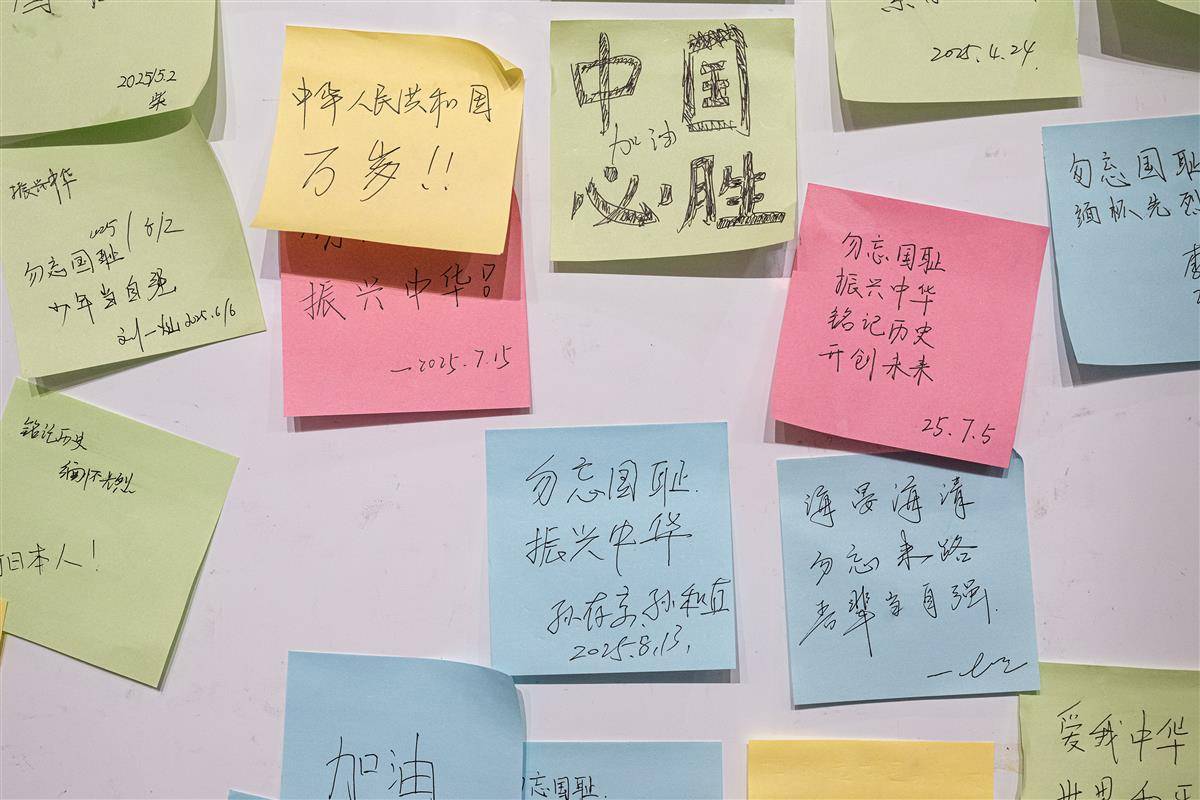 2025/5.2
柴
振兴中华
2025/6/2
勿忘国耻
少年当自强
刘一灿 2025.6/6
中华人民共和国
万岁!!
振兴中华!
—2025.7.15
中国
加油
必胜
2025.4.24.
勿忘国耻
振兴中华
铭记历史
开创未来
25.7.5
勿忘国耻
缅怀先烈
铭记历史
缅怀先烈
日本人!
勿忘国耻.
振兴中华
2025.8.13.
海晏海清
勿忘来路
吾辈当自强.
加油
忘国耻.
爱我中华
世界和平